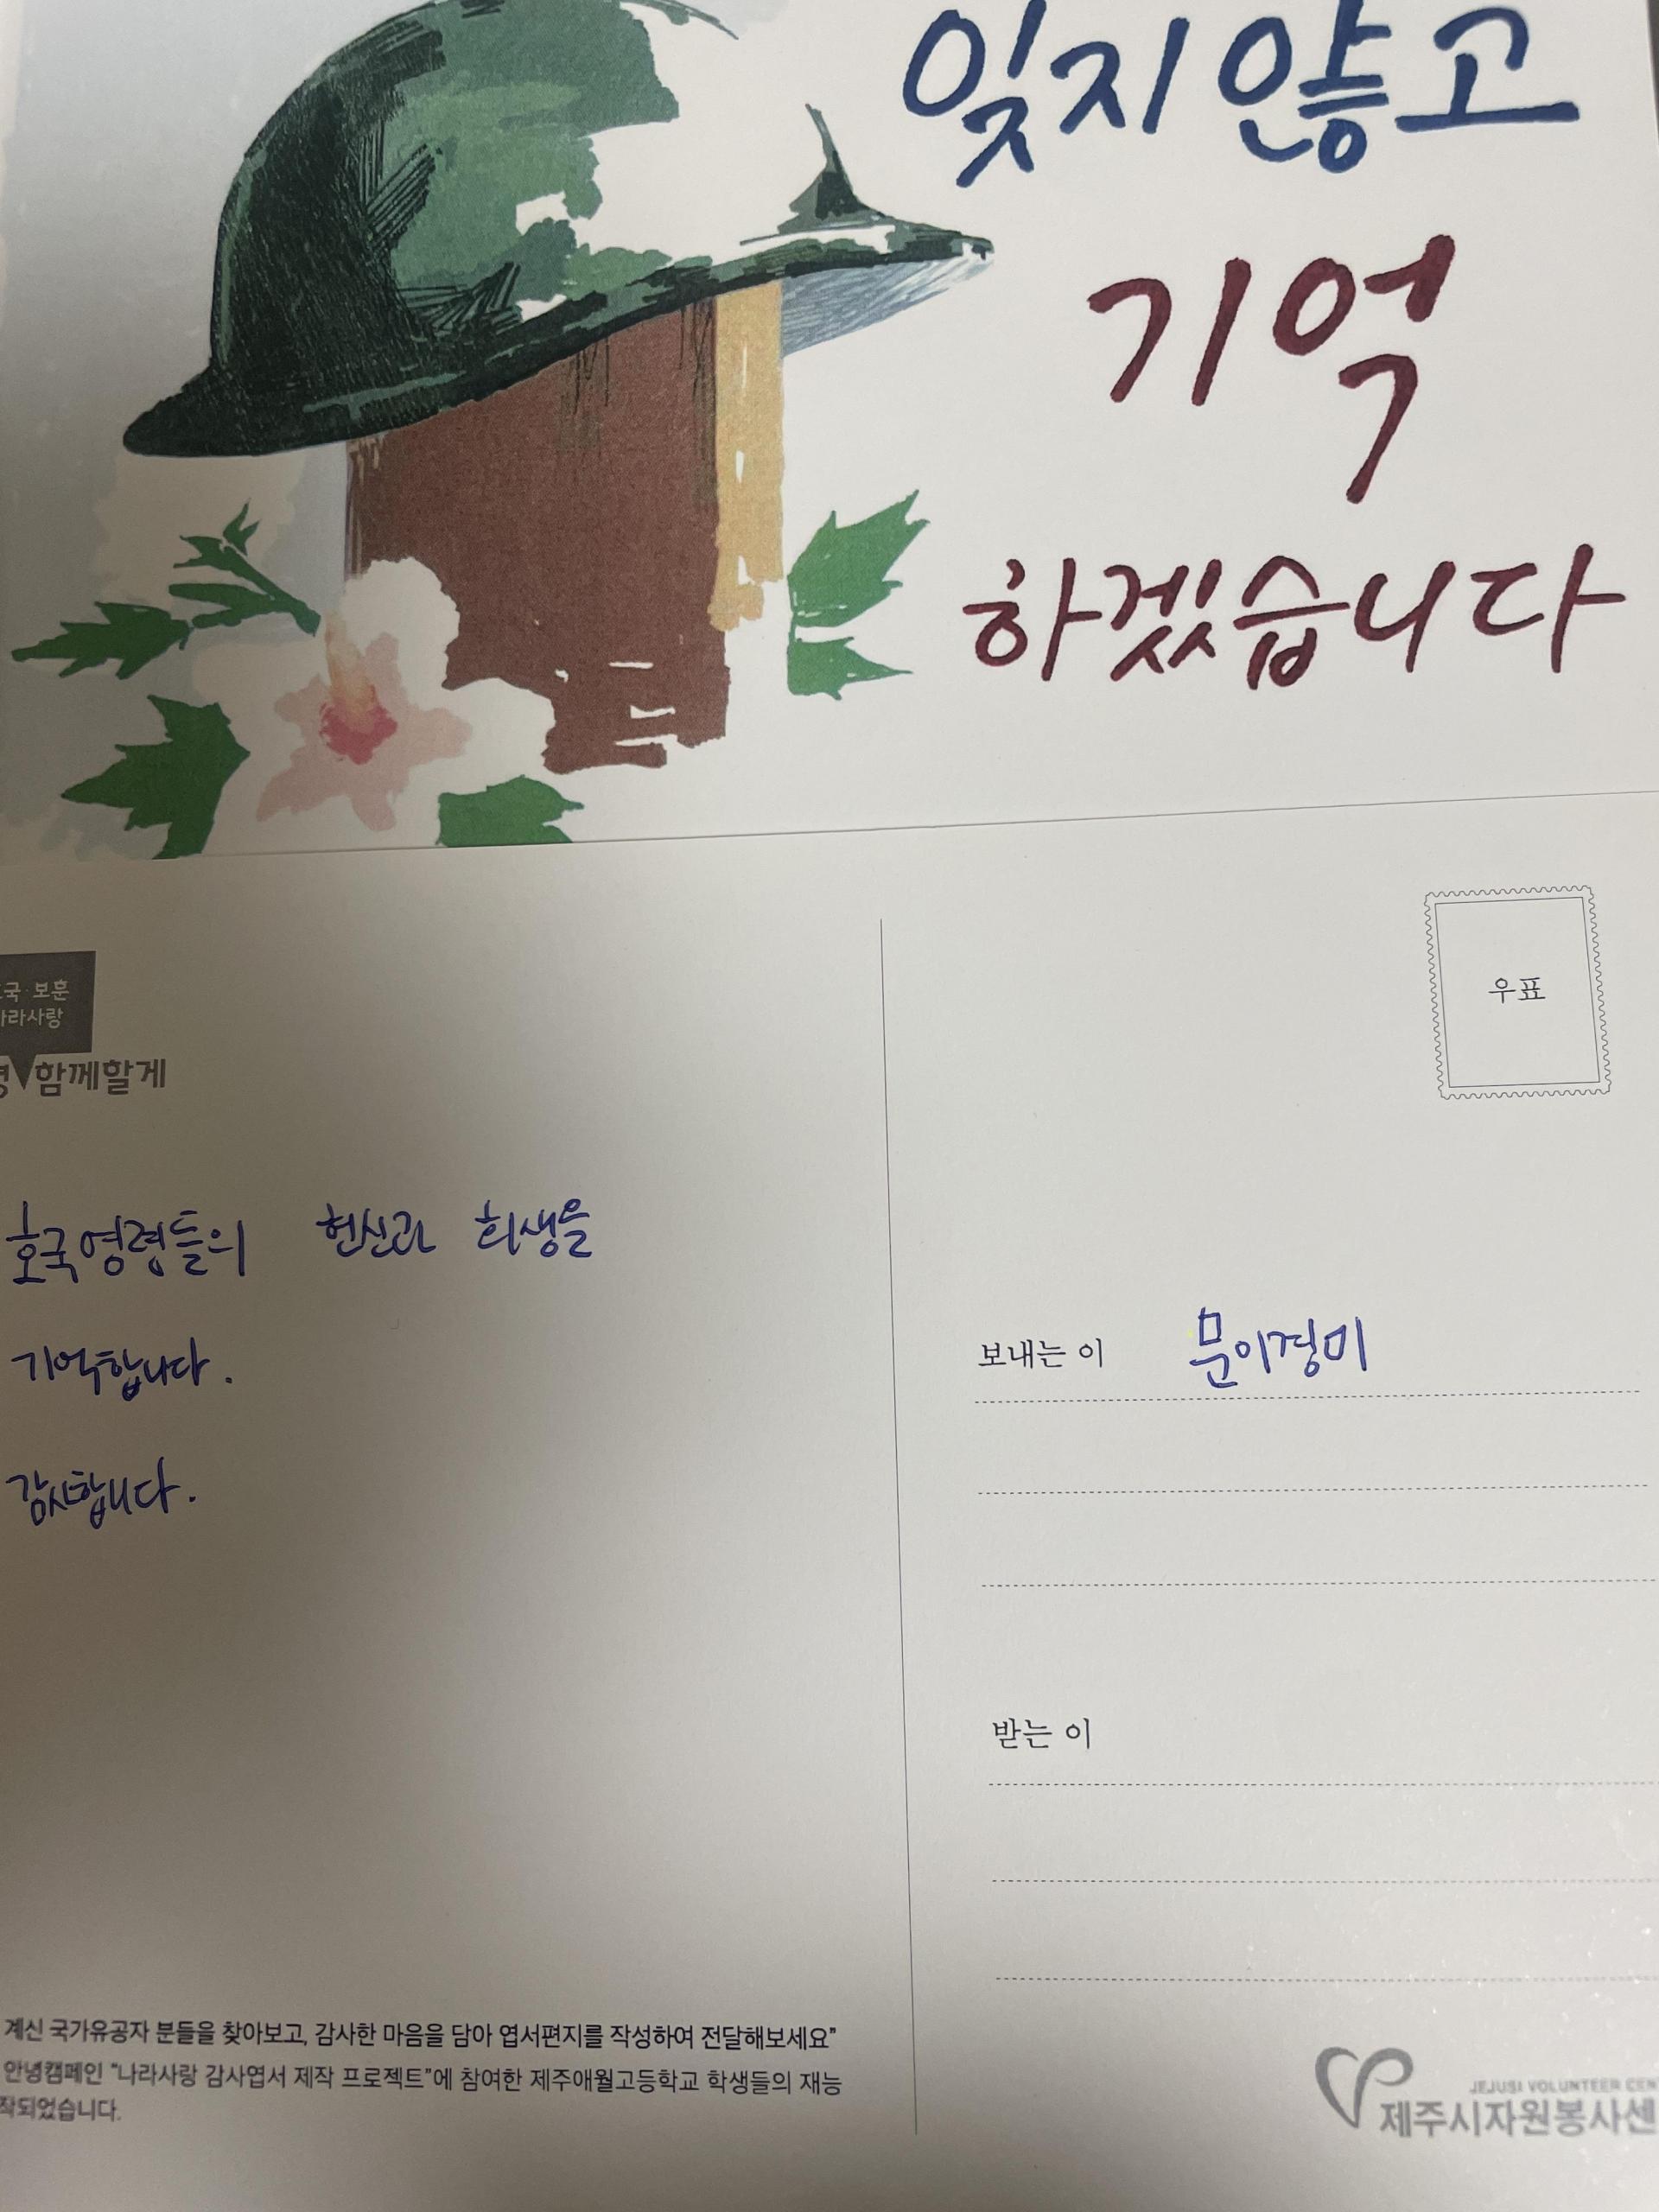 잊지 않고
기억
하겠습니다
국·보훈
라사랑
함께할게
우표
호국영령들의 헌신과 희생을
기억합니다.
감사합니다.
보내는 이 문이경미
받는 이
계신 국가유공자 분들을 찾아보고, 감사한 마음을 담아 엽서편지를 작성하여 전달해보세요”
안녕캠페인 “나라사랑 감사엽서 제작 프로젝트”에 참여한 제주애월고등학교 학생들의 재능
작되었습니다.
JEJUSI VOLUNTEER CEN
제주시자원봉사센